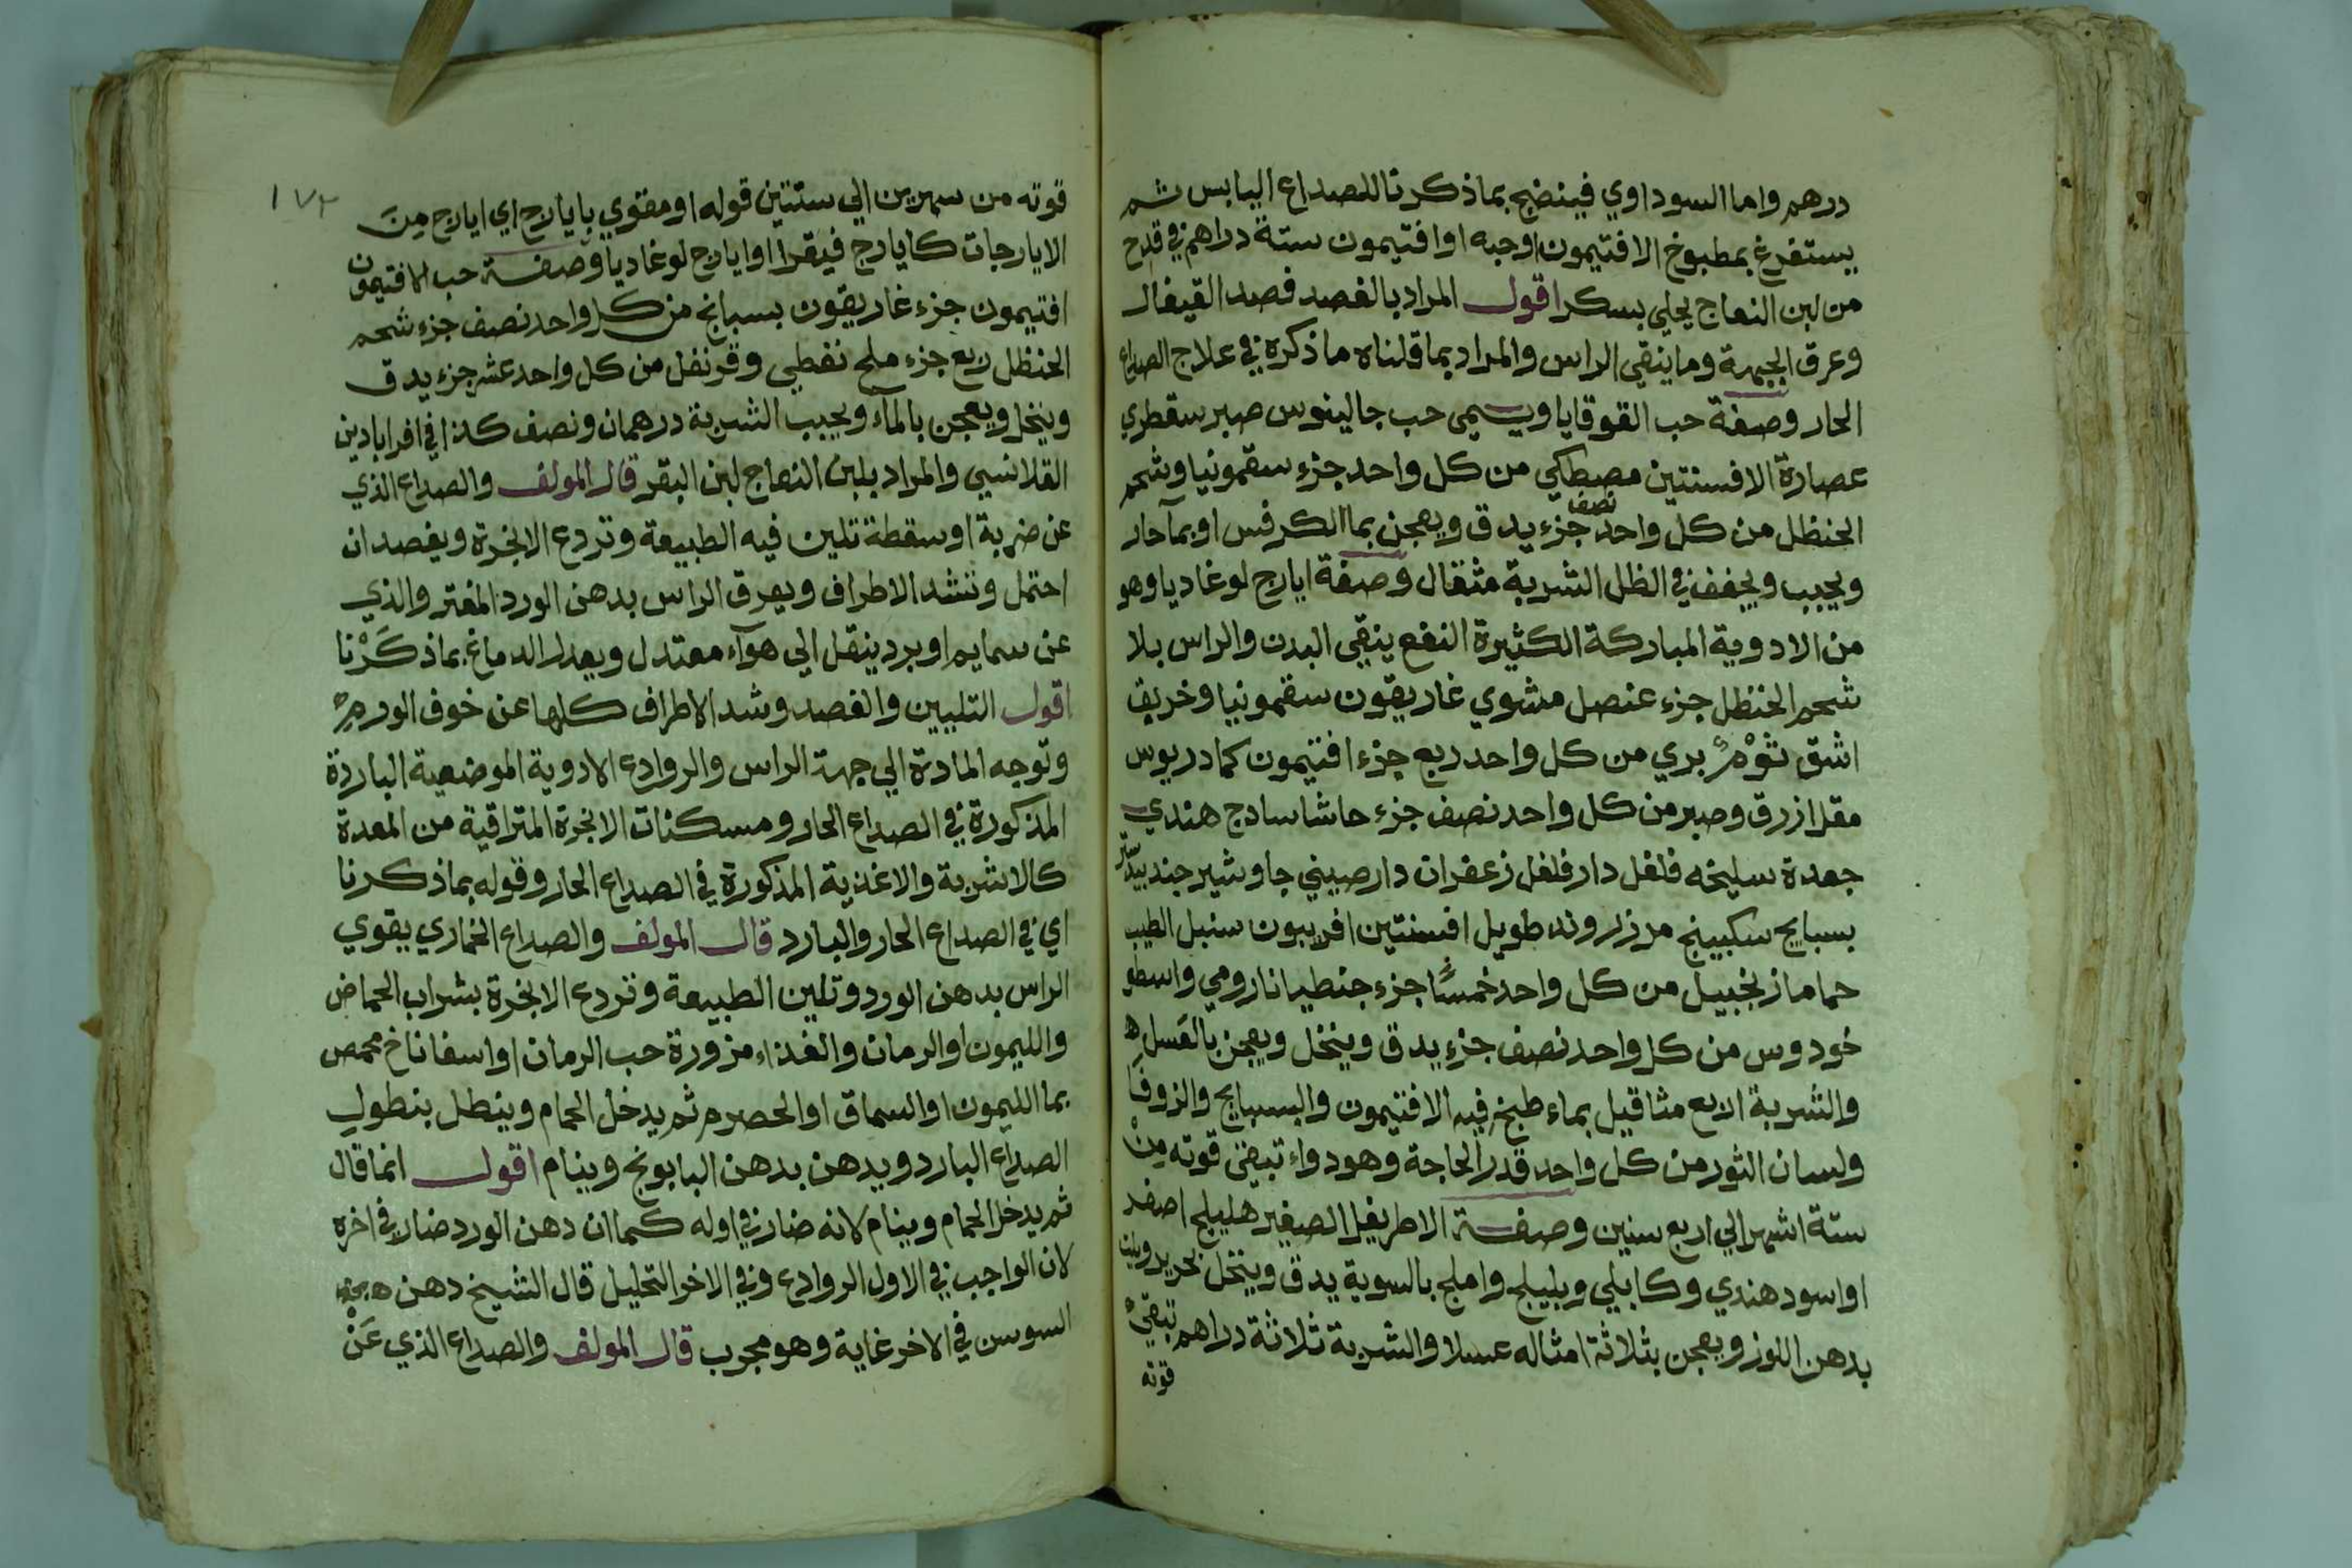 درهم واما السوداوي فينضج بما ذكرنا للصداع اليابس ثم
يستفرغ بمطبوخ الافتيمون اوحبه او افتيمون ستة دراهم في قدح
من لبن النعاج يحلي بسكر اقول المراد بالفصد فصد القيفال
وعرق الجبهة وما ينقي الراس والمراد بما قلناه ما ذكره في علاج الصداع
الحار وصفة حب القوقايا ويسمى حب جالينوس صبر سقطري
عصارة الافسنتين مصطكي من كل واحد جزء سقمونيا وشحم
الحنظل من كل واحد نصف جزء يدق ويعجن بما الكرفس او بمآ حار
ويحبب ويجفف في الظل الشربة مثقال وصفة ايارج لوغاديا وهو
من الادوية المباركة الكثيرة النفع ينقي البدن والراس بلا
شحم الحنظل جزء عنصل مشوي غاريقون سقمونيا وخربق
اشق ثوم بري من كل واحد ربع جزء افتيمون كمادريوس
مقل ازرق وصبر من كل واحد نصف جزء حاشا سادج هندي
جعدة سليخه فلفل دار فلفل زعفران دارصيني جاوشير جندبيدستر
بسبايج سكبينج مر زراوند طويل افسنتين افربيون سنبل الطيب
حماما زنجبيل من كل واحد خمسًا جزء جنطيانا رومي واسطو
خودوس من كل واحد نصف جزء يدق وينخل ويعجن بالعسل
والشربة اربع مثاقيل بماء طبخ فيه الافتيمون والبسبايج والزوفا
ولسان الثور من كل واحد قدر الحاجة وهو دواء تبقى قوته مِنْ
ستة اشهر الي اربع سنين وصفة الاطريفل الصغير هليلج اصفر
او اسود هندي وكابلي وبليلج واملج بالسوية يدق وينخل بحرير ويلت
بدهن اللوز ويعجن بثلاثة امثاله عسلا والشربة ثلاثة دراهم تبقي
قوته
١٧٢
قوته من سهرين الي سنتين قوله او مقوي بايارج اي ايارج مِنَ
الايارجات كايارج فيقرا او ايارج لوغاديا وصفة حب الافتيمون
افتيمون جزء غاريقون بسبايج من كل واحد نصف جزء شحم
الحنظل ربع جزء ملح نفطي وقرنفل من كل واحد عشر جزء يدق
وينخل ويعجن بالمآء ويحبب الشربة درهمان ونصف كذا في اقراباذين
القلانسي والمراد بلبن النعاج لبن البقر قال المولف والصداع الذي
عن ضربة او سقطة تلين فيه الطبيعة وتردع الابخرة ويفصد ان
احتمل وتشد الاطراف ويعرق الراس بدهن الورد المفتر والذي
عن سمايم او برد ينقل الى هوآء معتدل ويعدل الدماغ بما ذكَرْنا
اقول التليين والفصد وشد الاطراف كلها عن خوف الورم
وتوجه المادة الي جهة الراس والروادع الادوية الموضعية الباردة
المذكورة في الصداع الحار ومسكنات الابخرة المتراقية من المعدة
كالاشربة والاغذية المذكورة في الصداع الحار وقوله بما ذكرنا
اي في الصداع الحار والبارد قال المولف والصداع الخماري يقوي
الراس بدهن الورد وتلين الطبيعة وتردع الابخرة بشراب الحماض
والليمون او الرمان والغذاء مزورة حب الرمان او اسفاناخ محمص
بما الليمون او السماق او الحصرم ثم يدخل الحمام وينطل بنطول
الصداع البارد ويدهن بدهن البابونج وينام اقول انما قال
ثم يدخل الحمام وينام لانه ضار في اوله كما ان دهن الورد ضار في اخره
لان الواجب في الاول الروادع وفي الاخر التحليل قال الشيخ دهن
السوسن في الاخر غاية وهو مجرب قال المولف والصداع الذي عَنْ